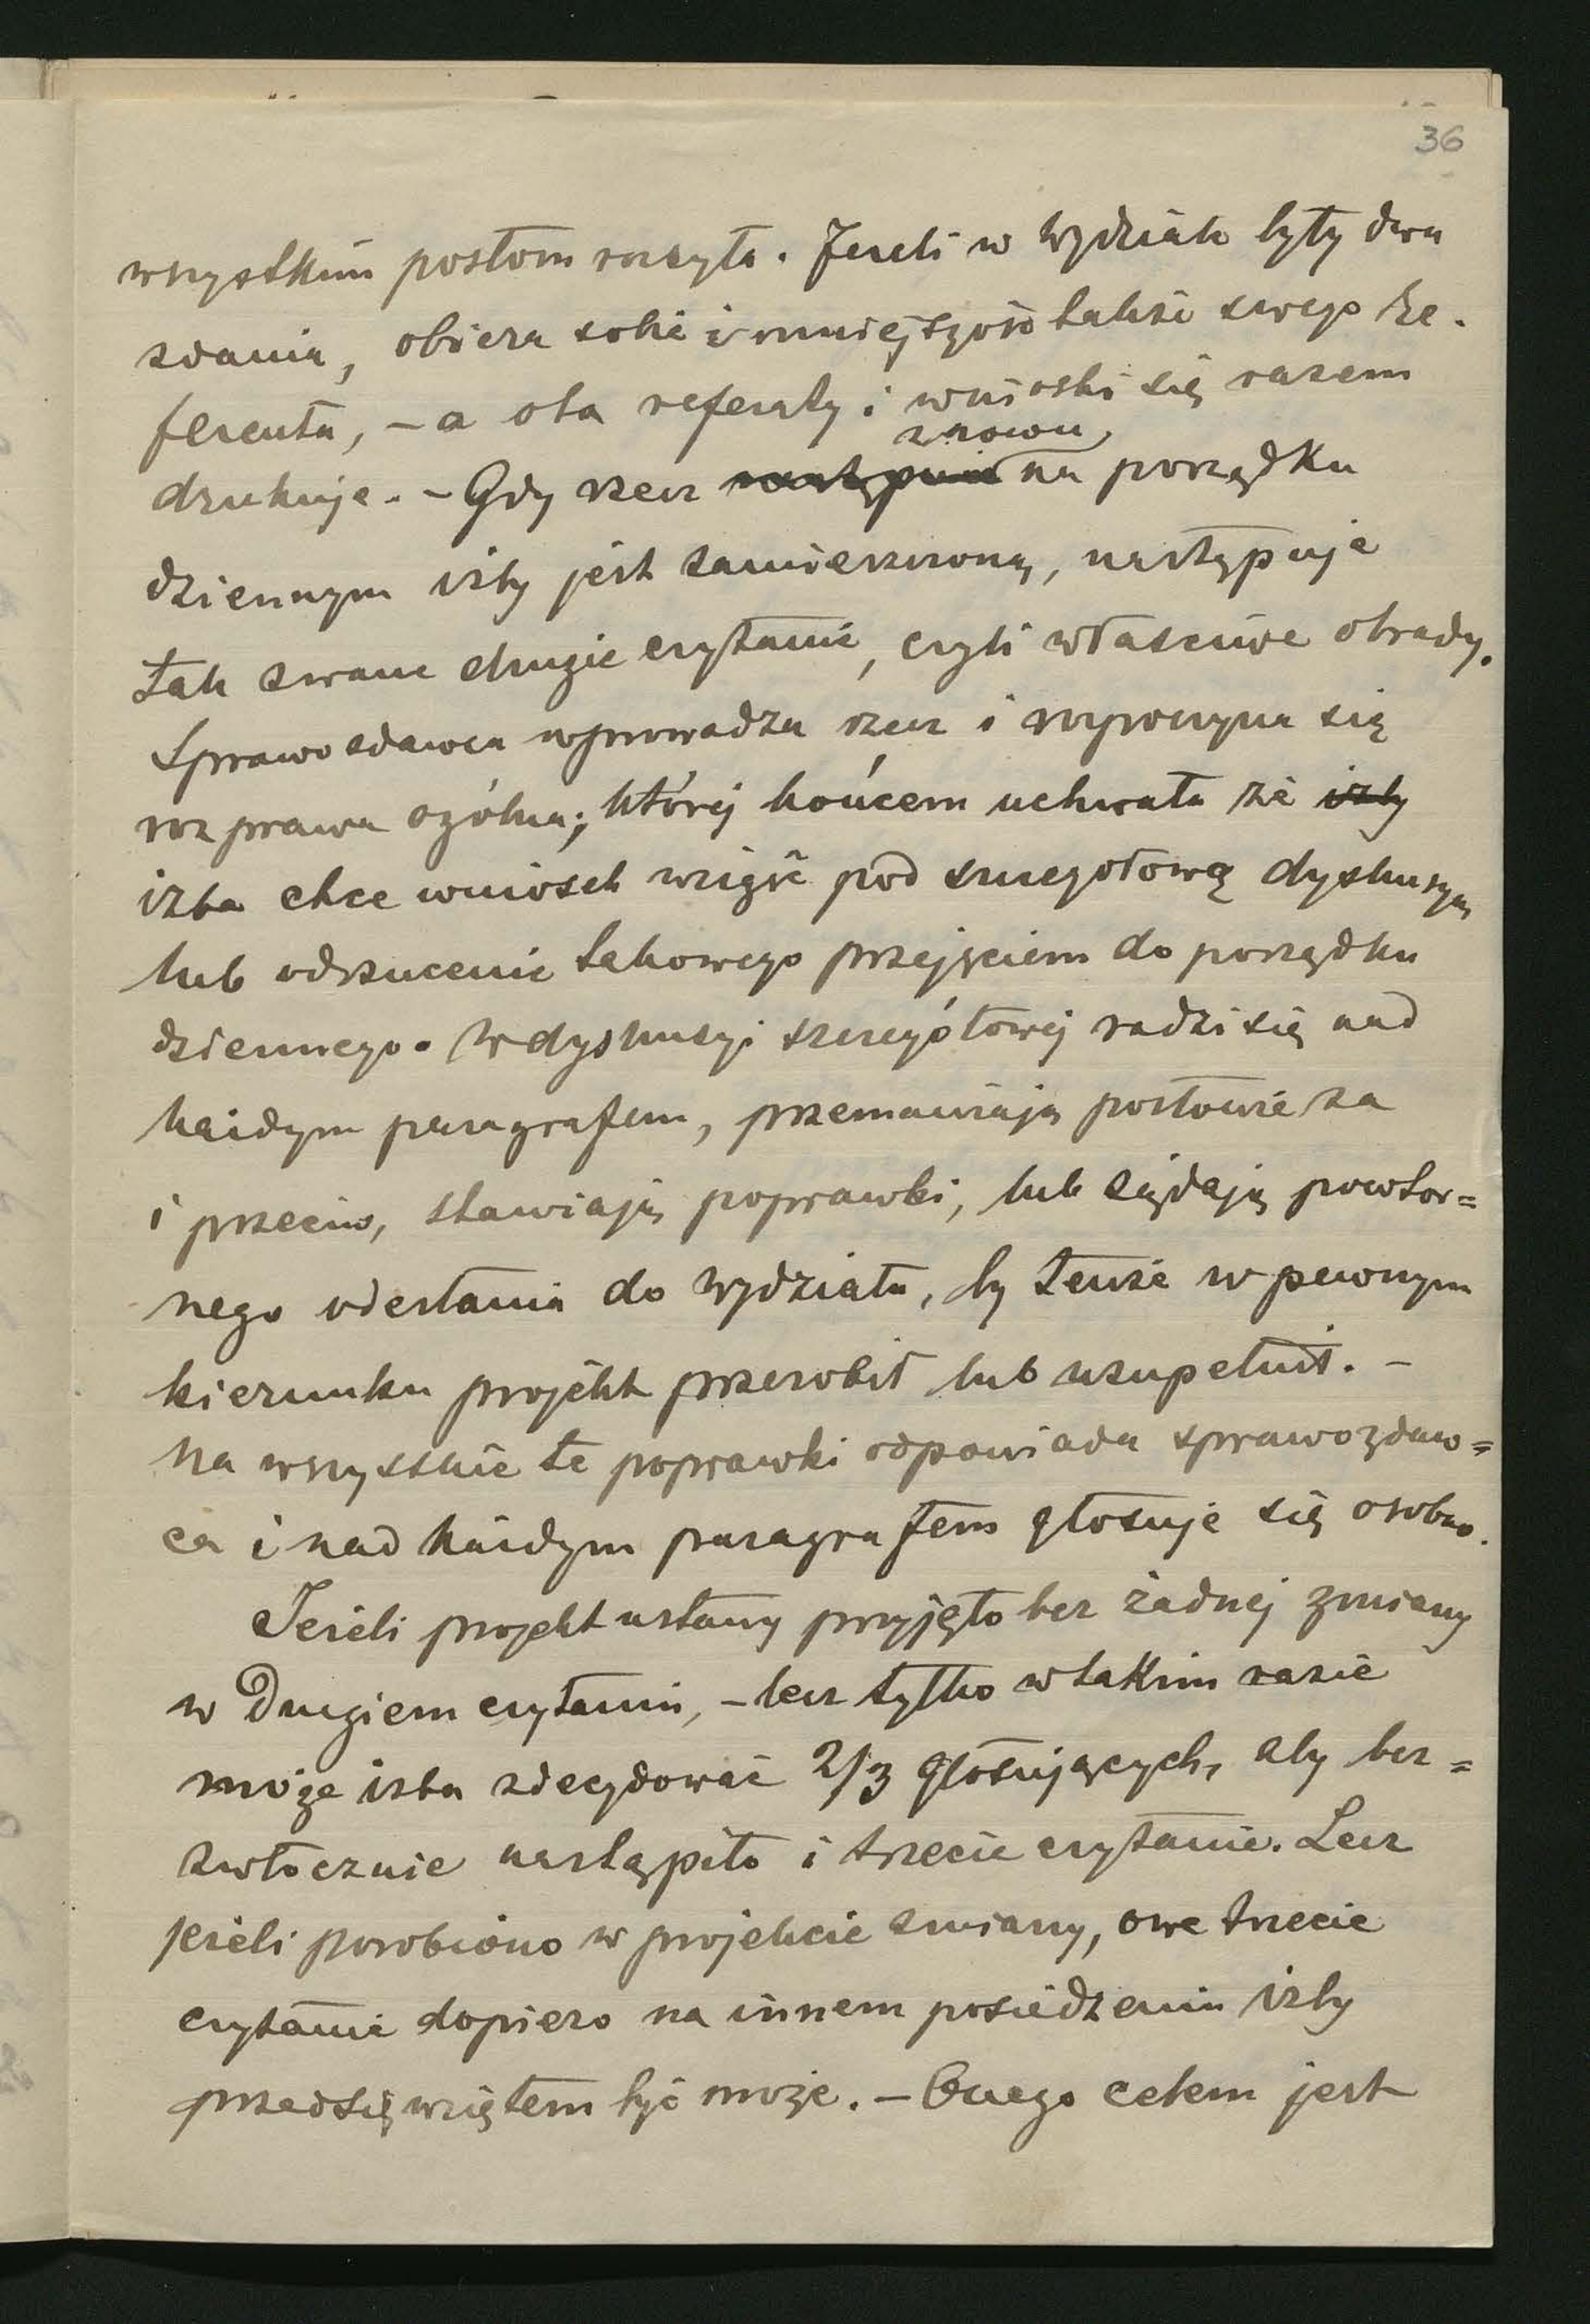 36
wszystkim posłom rozsyła. Jeżeli w Wydziale były dwa
zdania, obiera sobie i mniejszość także swego re-
ferenta, – a oba referaty i wnioski się razem
znowu
drukuje. – Gdy rzecz następnie na porządku
dziennym izby jest zamieszczoną, następuje
tak zwane drugie czytanie, czyli właściwe obrady.
Sprawozdawca wprowadza rzecz i rozpoczyna się
rozprawa ogólna; której końcem uchwała że izby
izba chce wniosek wziąść pod szczegółową dyskusyą
lub odrzucenie takowego przejęciem do porządku
dziennego. W dyskusyi szczegółowej radzi się nad
każdym paragrafem, przemawiają posłowie za
i przeciw, stawiają poprawki, lub żądają powtor=
nego odesłania do Wydziału, by tenże w pewnym
kierunku projekt przerobił lub uzupełnił. –
Na wszystkie te poprawki odpowiada sprawozdaw=
ca i nad każdym paragrafem głosuje się osobno.
Jeżeli projekt ustawy przyjęto bez żadnej zmiany
w Drugiem czytaniu, – lecz tylko w takim razie
może izba zdecydować 2/3 głosujących, aby bez=
zwłocznie nastąpiło i trzecie czytanie. Lecz
jeżeli porobiono w projekcie zmiany, owe trzecie
czytanie dopiero na innem posiedzeniu izby
przedsięwziętem być może. – Onego celem jest